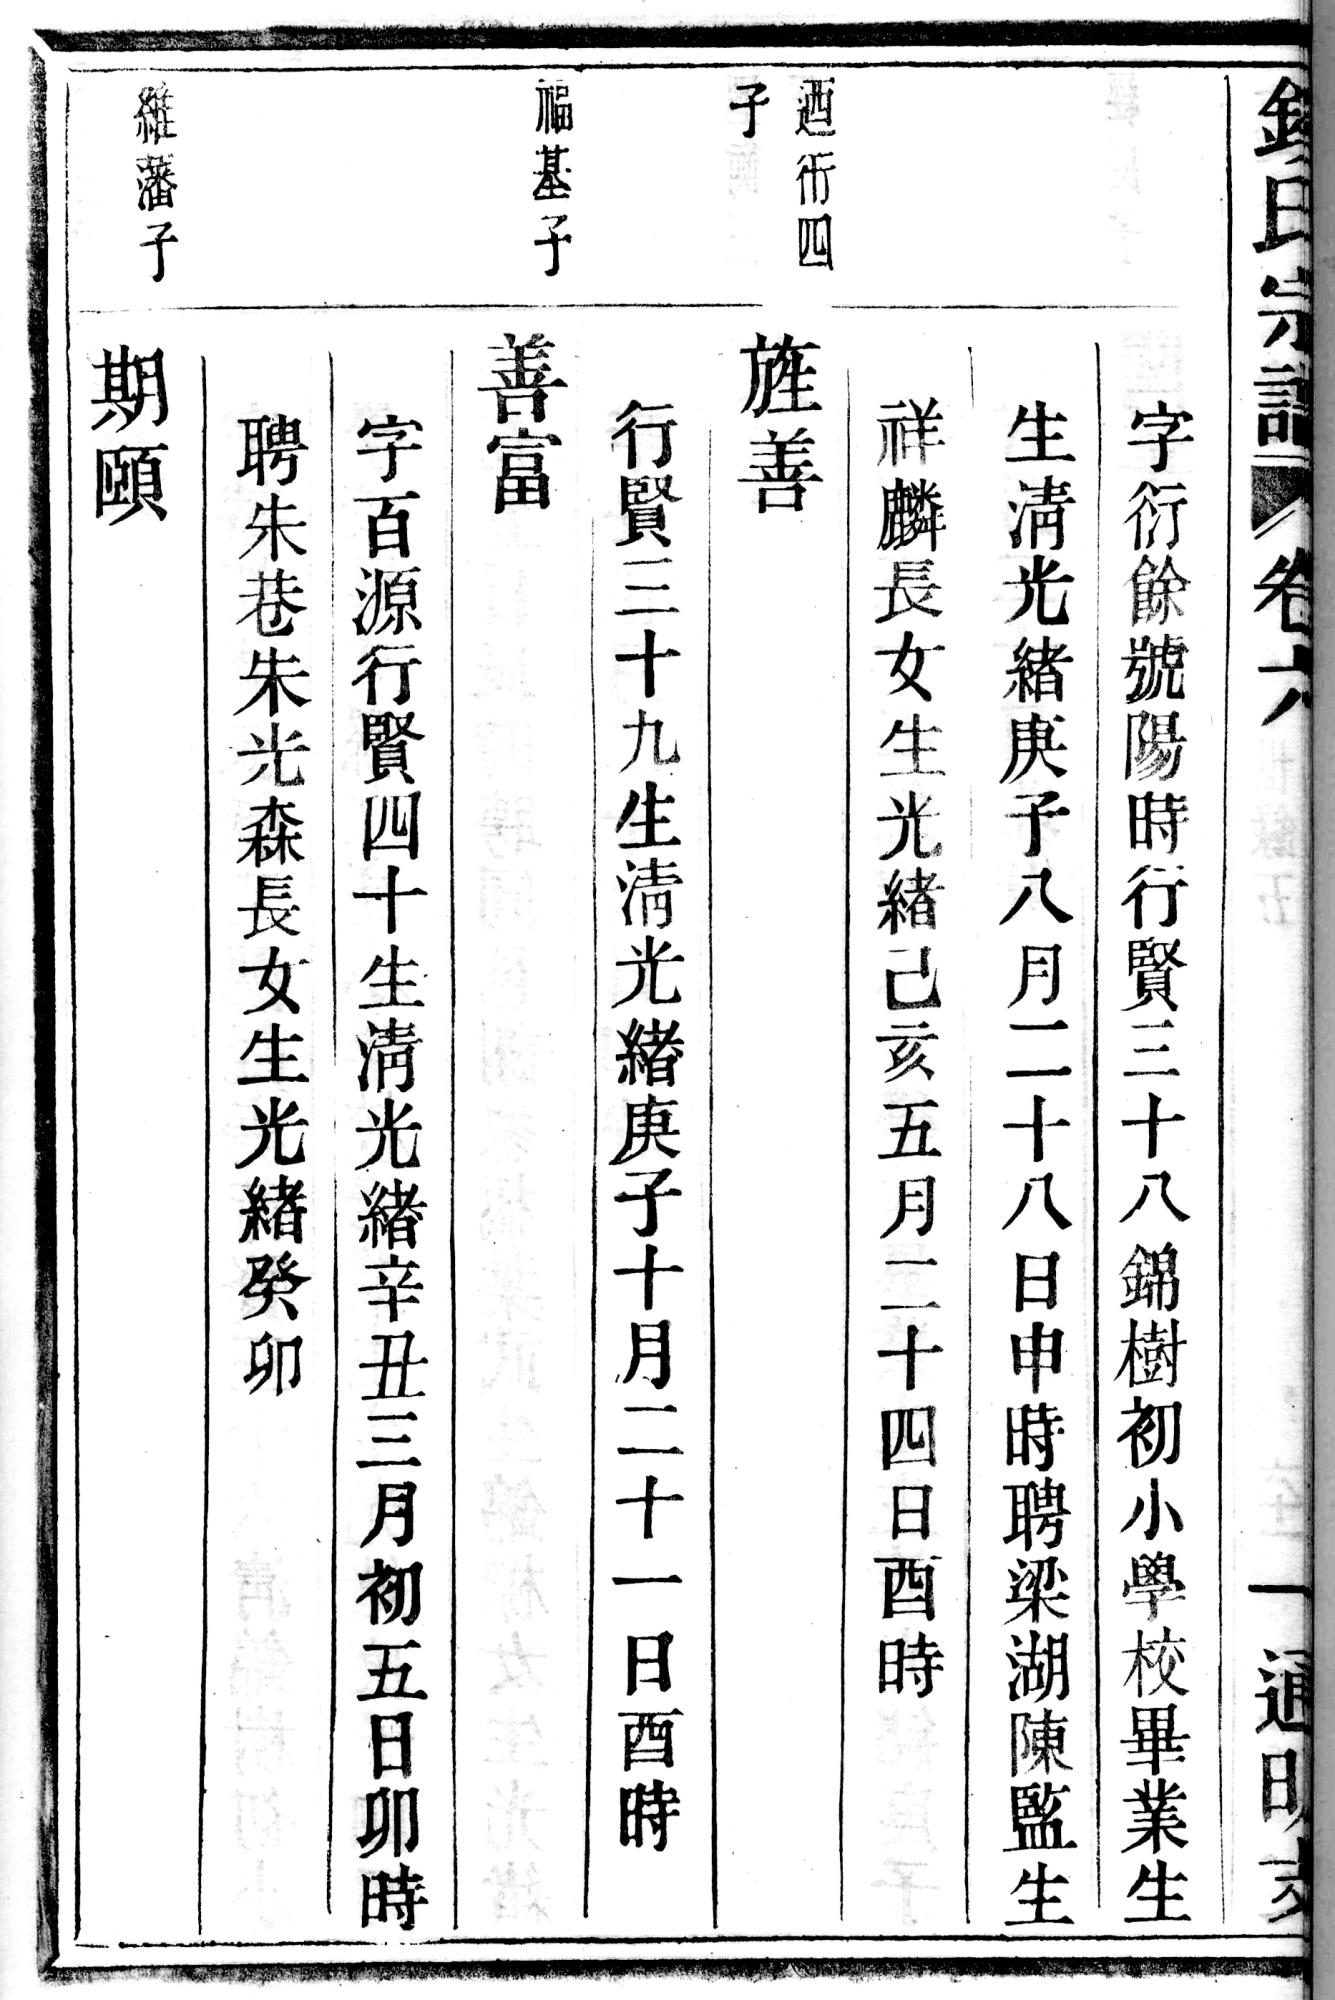 氏宗譜 卷六 一 通明支
字衍餘號陽時行賢三十八錦樹初小學校畢業生
生清光緒庚子八月二十八日申時聘梁湖陳監生
祥麟長女生光緒己亥五月二十四日酉時
迺衎四
子
旌善
行賢三十九生清光緒庚子十月二十一日酉時
福基子
善富
字百源行賢四十生清光緒辛丑三月初五日卯時
聘朱巷朱光森長女生光緒癸卯
維藩子
期頤